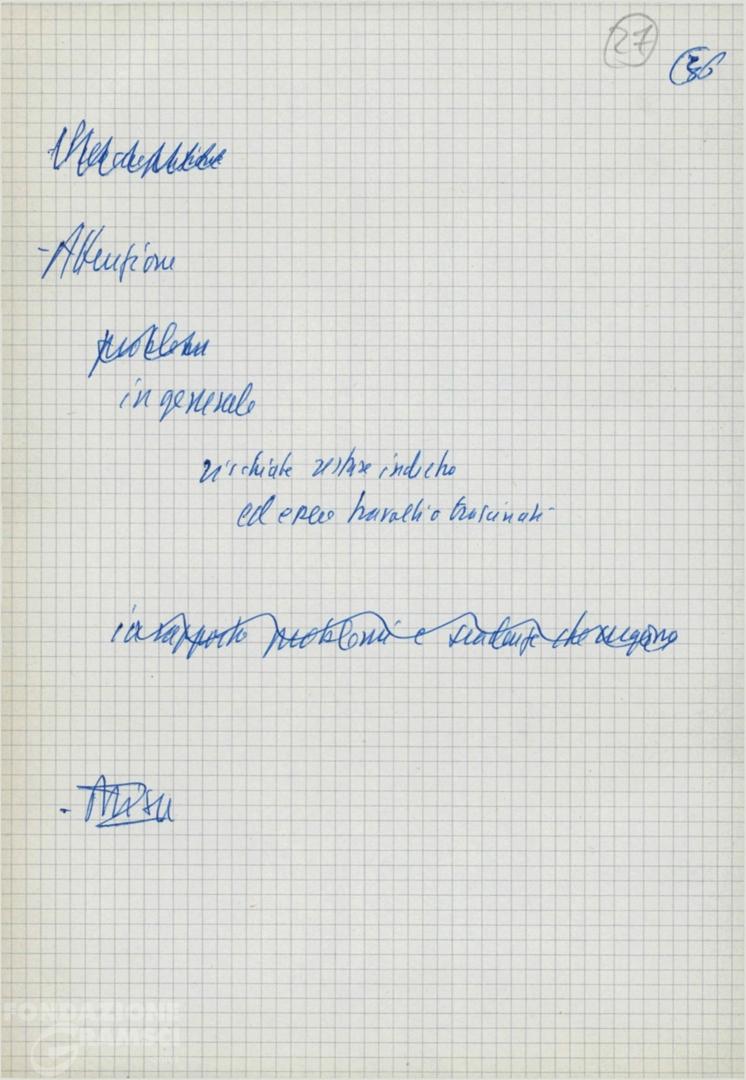 27
36
- Attenzione
problemi
in generale
rischiate restare indietro
ed essere travolti o trascinati
in rapporto problemi e scadenze che vengono
- Misu
FONDAZIONE
GRAMSCI